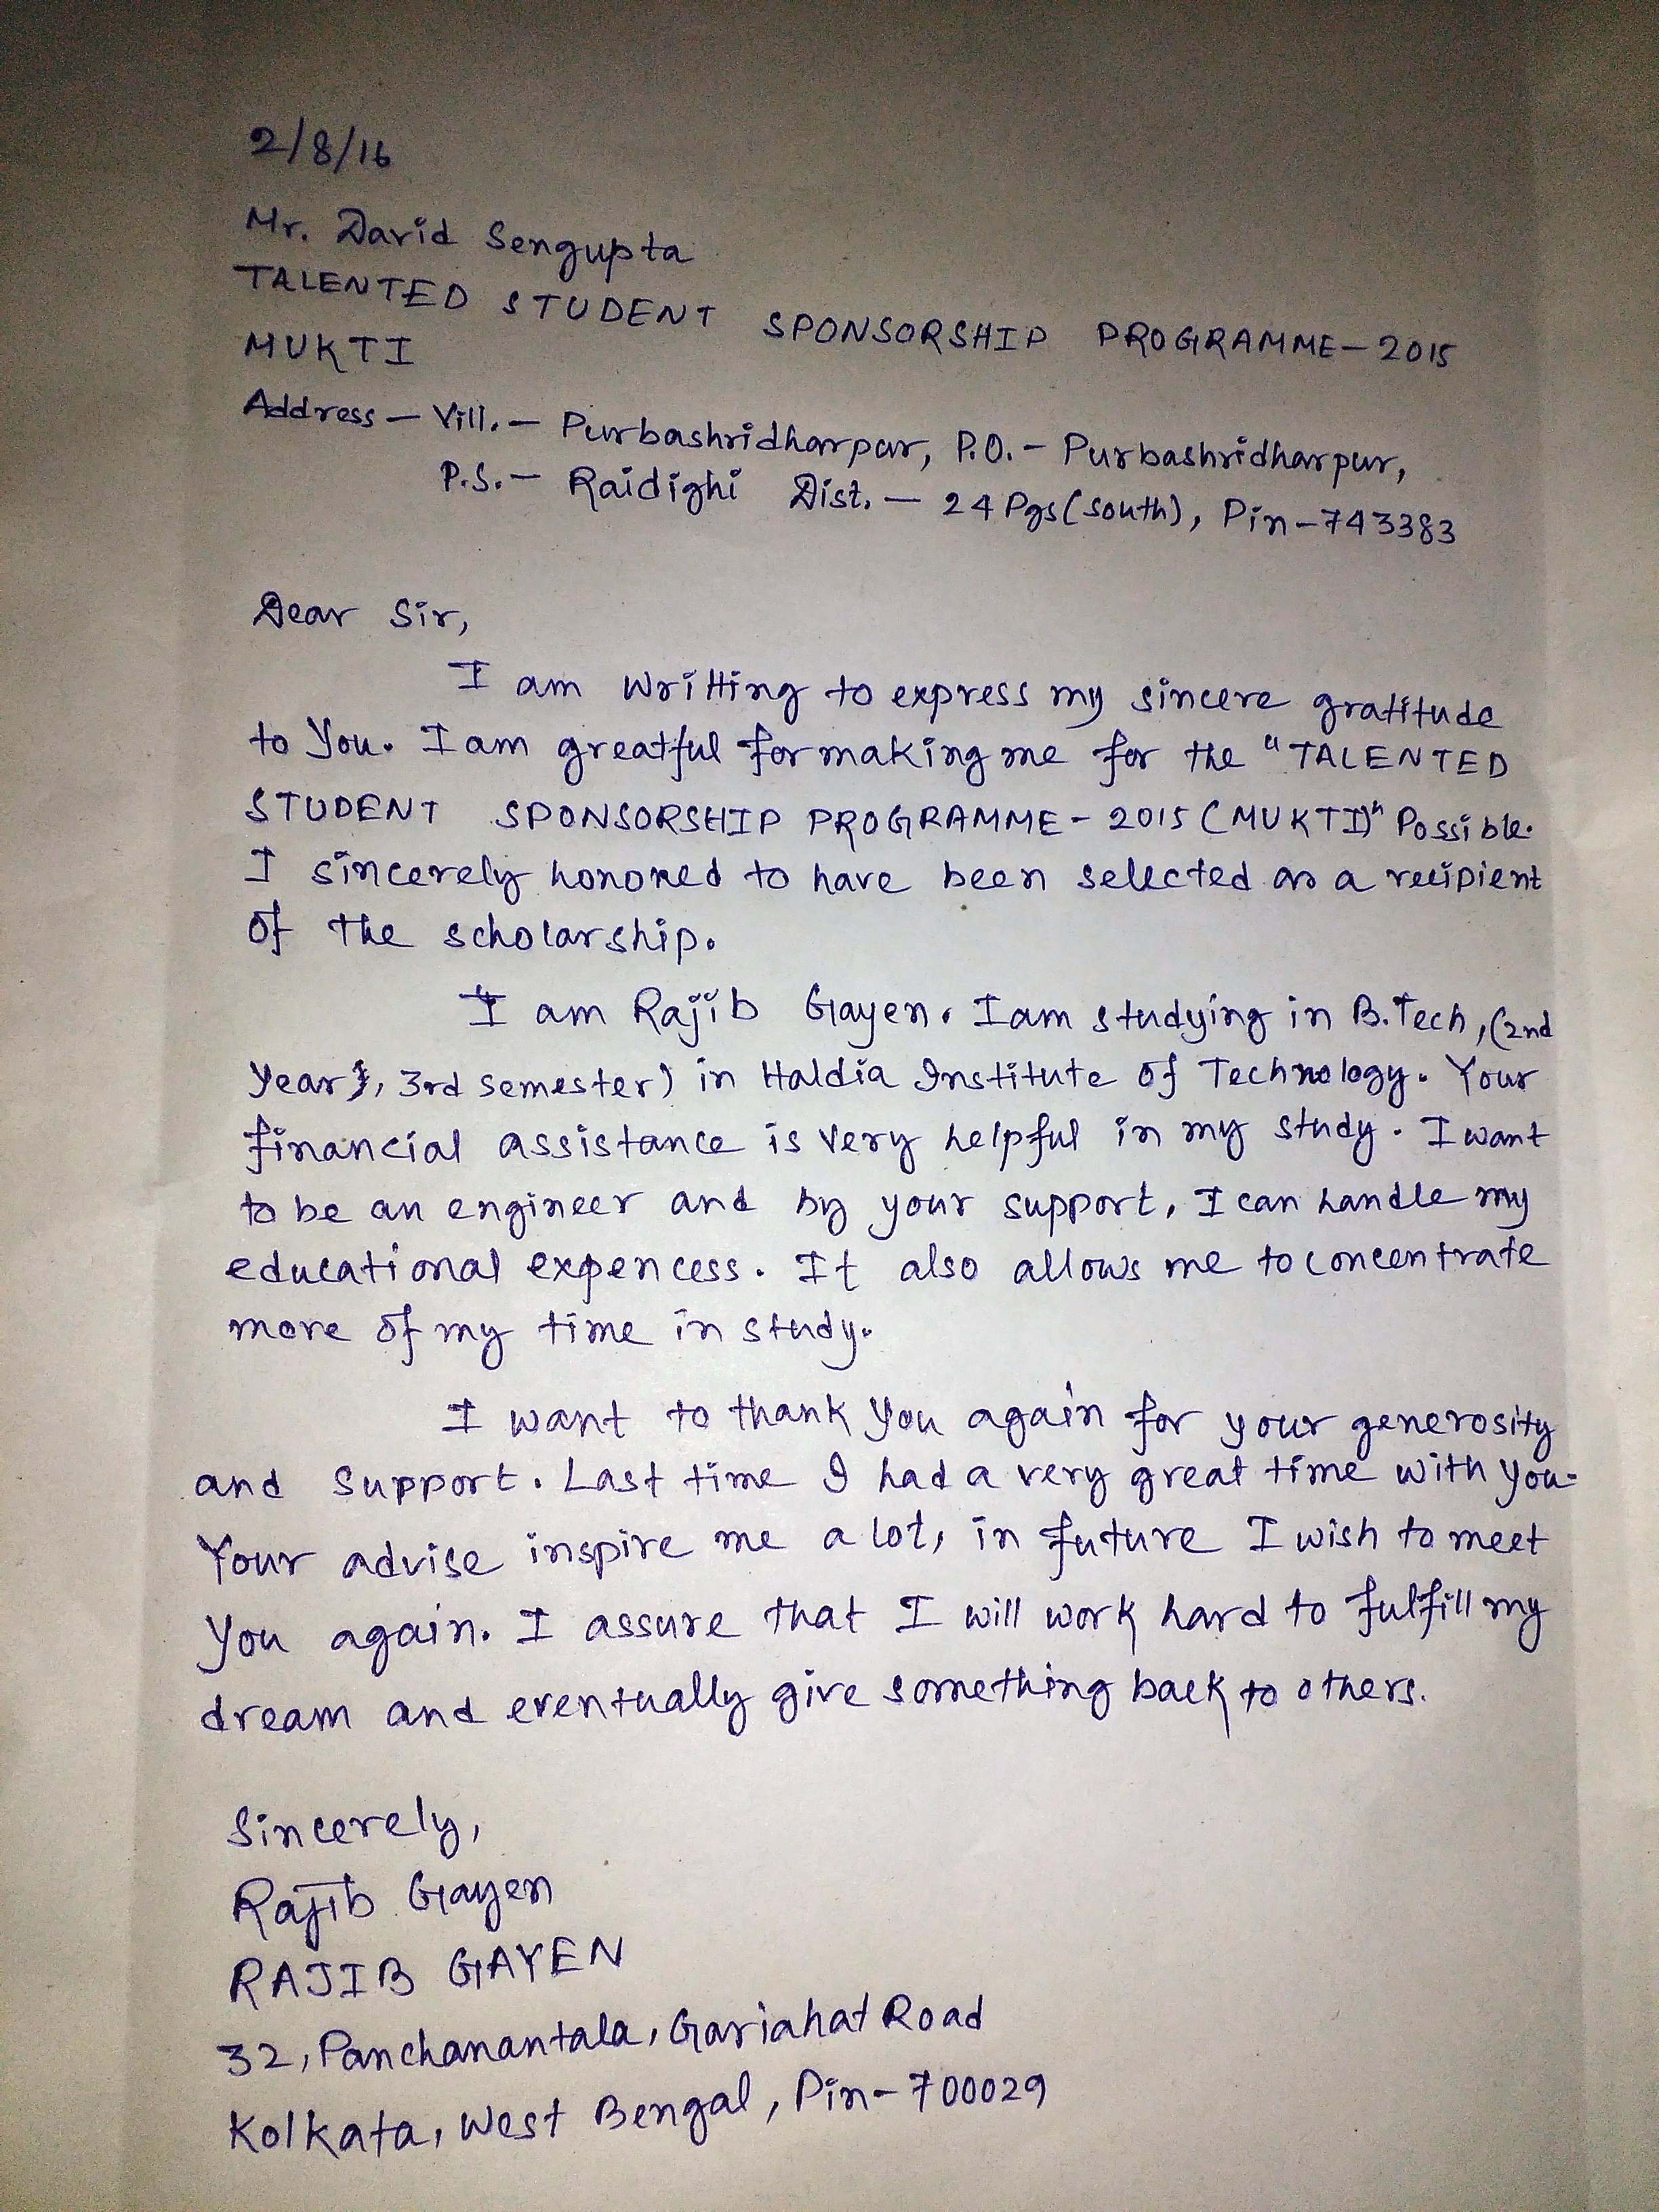 2/8/16
Mr. David Sengupta
TALENTED STUDENT SPONSORSHIP PROGRAMME-2015
MUKTI
Address - Vill. - Purbashridharpur, P.O. - Purbashridharpur,
P.S. - Raidighi Dist. - 24 Pgs (South), Pin-743383
Dear Sir,
I am writting to express my sincere gratitude
to You. I am greatful for making me for the "TALENTED
STUDENT SPONSORSHIP PROGRAMME - 2015 (MUKTI)" Possible.
I sincerely honored to have been selected as a recipient
of the scholarship.
I am Rajib Gayen. I am studying in B.Tech, (2nd
Year, 3rd semester) in Haldia Institute of Technology. Your
financial assistance is very helpful in my study. I want
to be an engineer and by your support, I can handle my
educational expencess. It also allows me to concentrate
more of my time in study.
I want to thank you again for your generosity
and support. Last time I had a very great time with you.
Your advise inspire me a lot, in future I wish to meet
you again. I assure that I will work hard to fulfill my
dream and eventually give something back to others.
Sincerely,
Rajib Gayen
RAJIB GAYEN
32, Panchanantala, Gariahat Road
Kolkata, West Bengal, Pin-700029